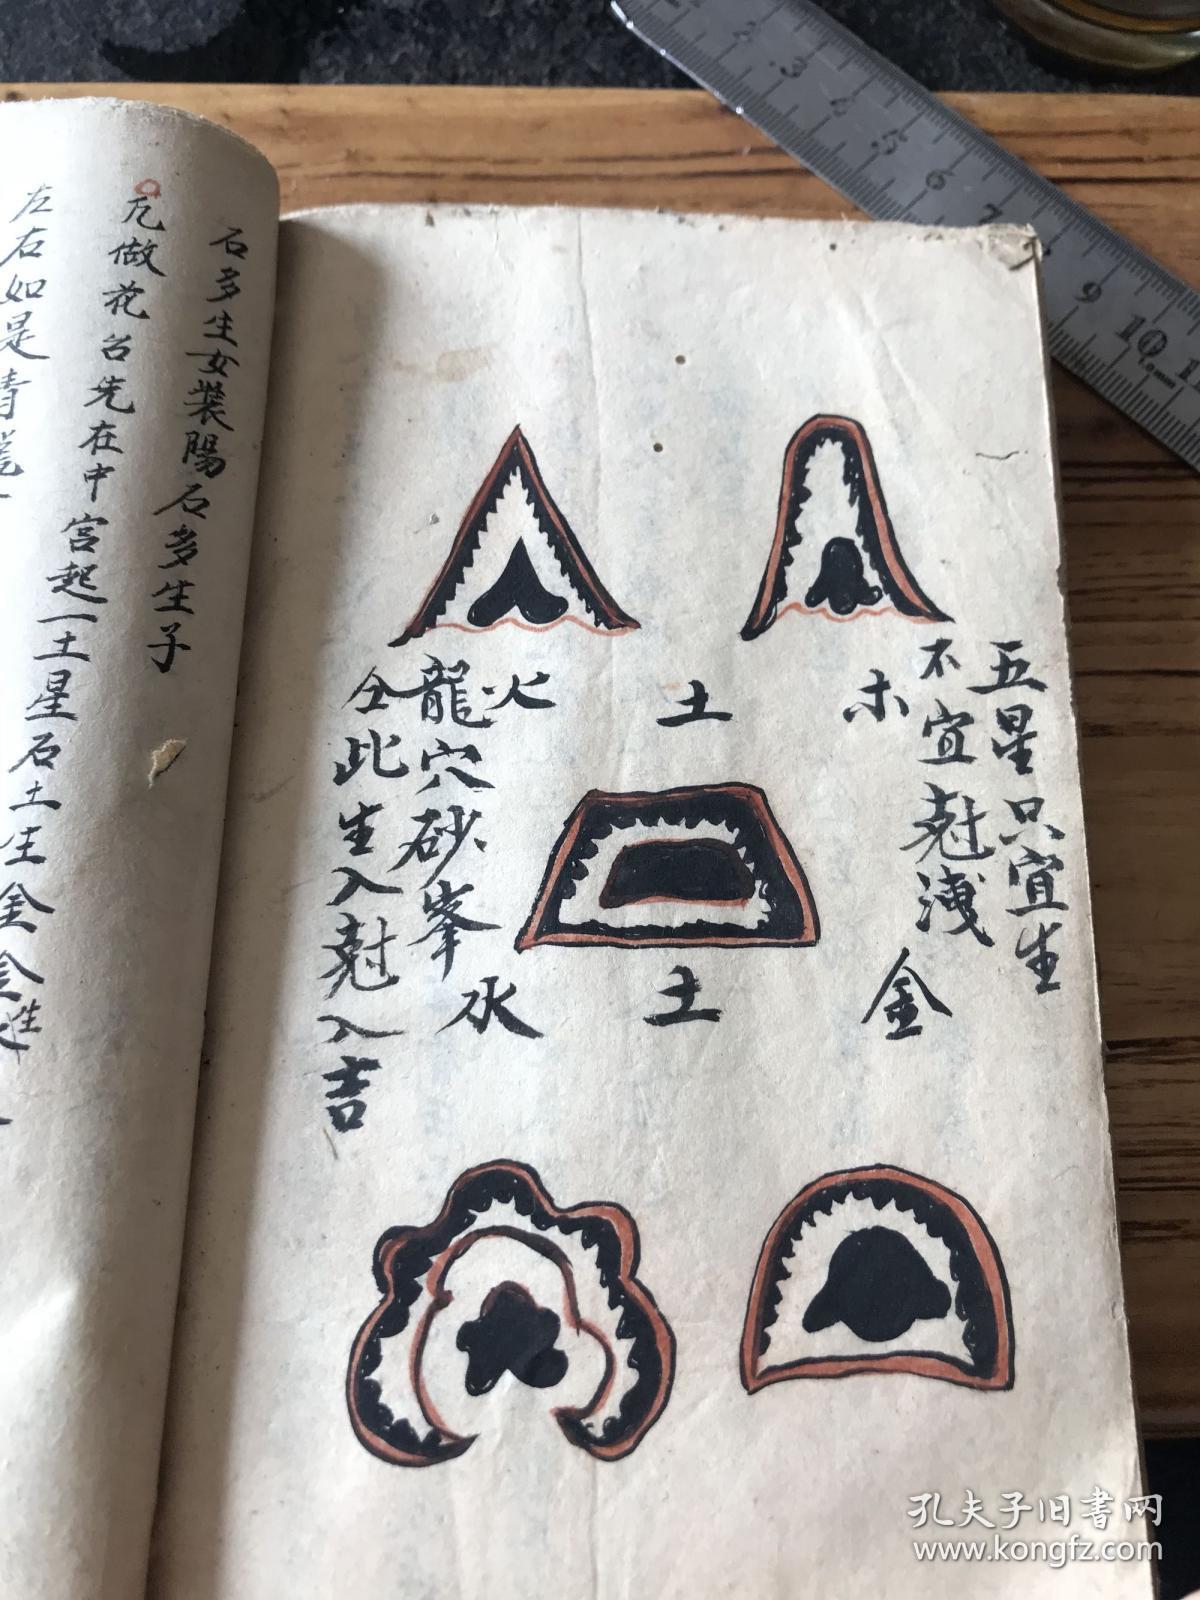 五星只宜生
不宜尅洩
木
土
火
龍穴砂峯
仝此生入尅入吉
金
土
水
石多生女裝陽石多生子
凡做花台先在中宮起一土星石土生金金
左右如是青龍
孔夫子旧书网
www.kongfz.com
1 2 3 4 5 6 7 8 9 10